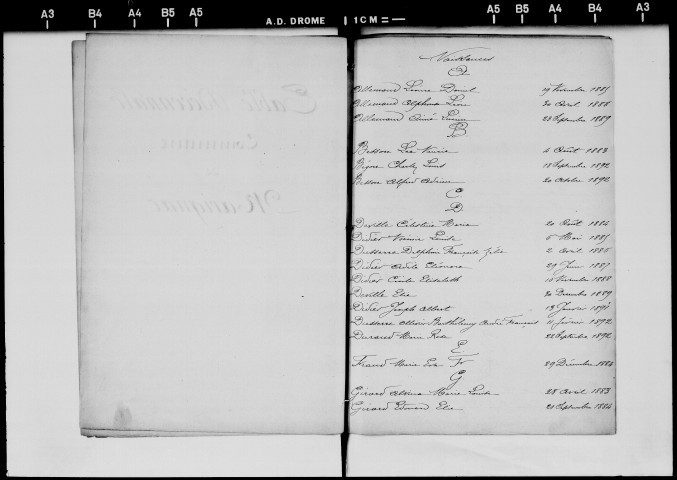 A3 B4 A4 B5 A5 A.D. DROME 1 CM = A5 B5 A4 B4 A3
Table Décennale
Commune
Marignac
Naissances
A
Allemand Léonie Daniel 19 Novembre 1885
Allemand Alphonse Léon 20 Avril 1888
Allemand Aimé 23 Septembre 1889
B
Besson Léa Marie 4 Août 1883
Charles Louis 18 Septembre 1892
Besson Alfred 20 Octobre 1892
C
D
Deville Célestine Marie 20 Août 1884
Didier 6 Mai 1885
Delphin François 2 Avril 1886
Didier Adèle Eléonore 29 Juin 1887
Didier Elisabeth 10 Novembre 1888
Deville Elie 20 Décembre 1889
Didier Joseph Albert 18 Janvier 1891
Barthélemy André François 11 février 1892
Durand Marie Rose 22 Septembre 1892
E
F
Marie 29 Décembre 1884
G
Girard Marie Louise 28 Avril 1883
Girard Edouard Elie 21 Septembre 1884